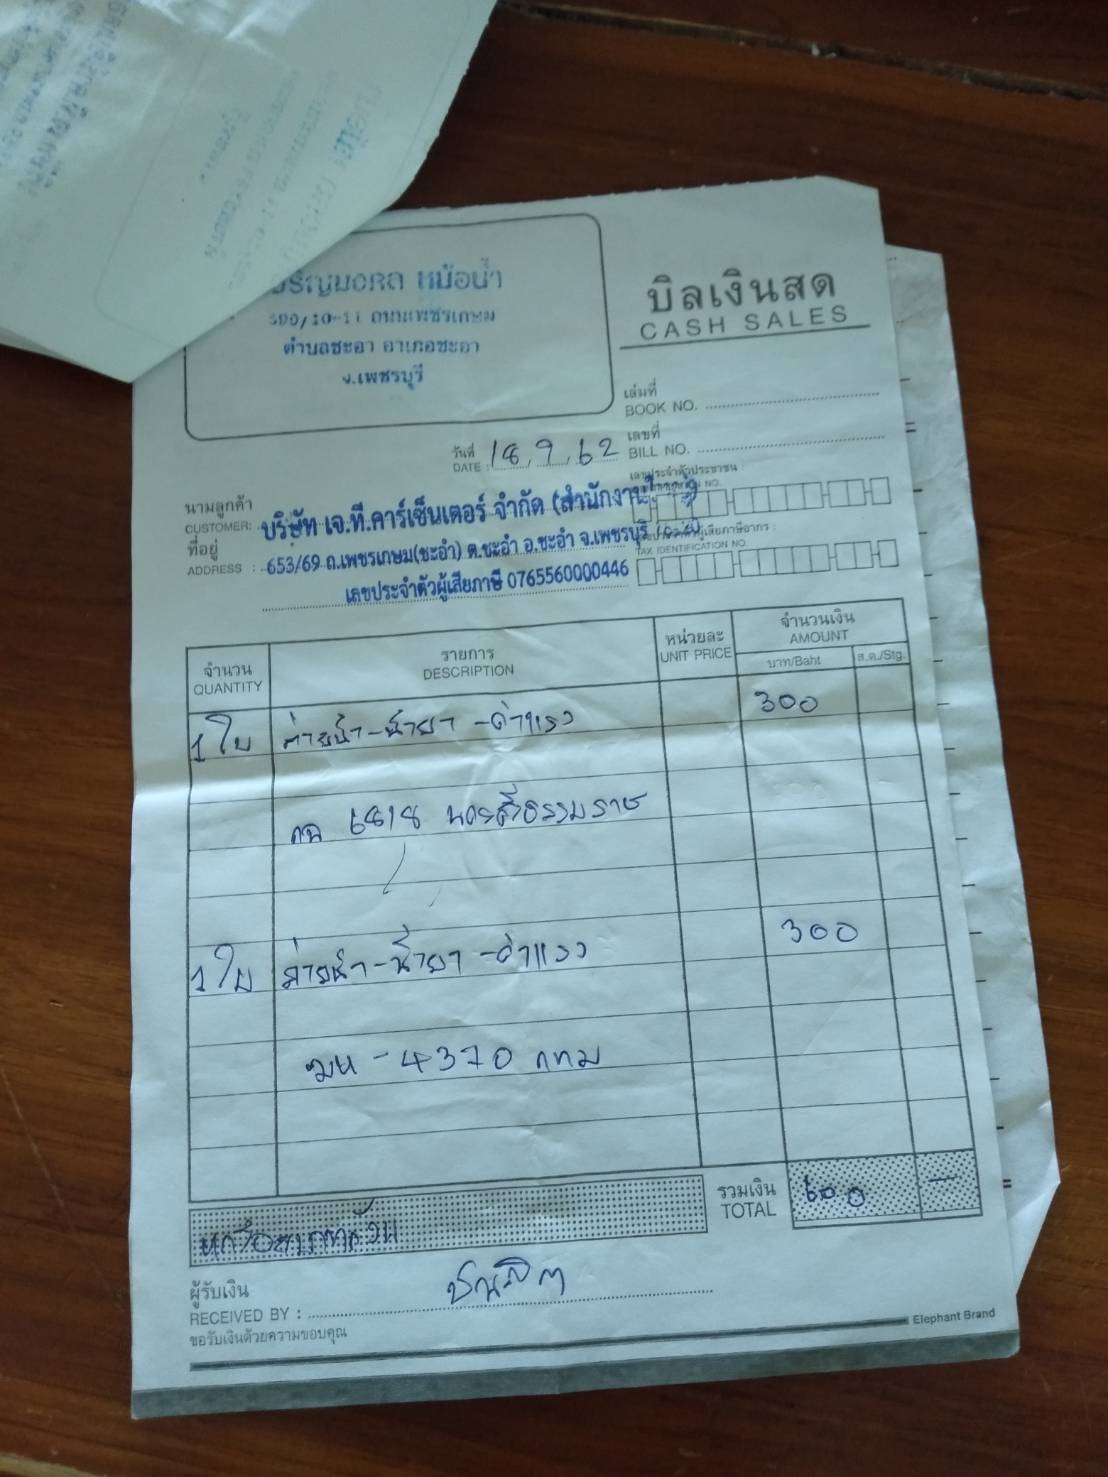 หม้อน้ำ
ถนนเพชรเกษม
ตำบลชะอำ อำเภอชะอำ
จ.เพชรบุรี
บิลเงินสด
CASH SALES
เล่มที่
BOOK NO.
เลขที่
BILL NO.
วันที่
DATE : 18, 9, 62
เลขประจำตัวประชาชน :
นามลูกค้า
CUSTOMER: บริษัท เจ.ที.คาร์เซ็นเตอร์ จำกัด (สำนักงานใหญ่)
ที่อยู่
ADDRESS : 653/69 ถ.เพชรเกษม(ชะอำ) ต.ชะอำ อ.ชะอำ จ.เพชรบุรี
เลขประจำตัวผู้เสียภาษี 0765560000446
TAX IDENTIFICATION NO.
จำนวน
QUANTITY
รายการ
DESCRIPTION
หน่วยละ
UNIT PRICE
จำนวนเงิน
AMOUNT
บาท/Baht
ส.ต./Stg.
1 ใบ ถ่ายน้ำ-น้ำยา-ค่าแรง 300
6818 นครศรีธรรมราช
1 ใบ ถ่ายน้ำ-น้ำยา-ค่าแรง 300
ฆห - 4370 กทม
หกร้อยบาทถ้วน
รวมเงิน
TOTAL
600 -
ผู้รับเงิน
RECEIVED BY :
ขอรับเงินด้วยความขอบคุณ
Elephant Brand